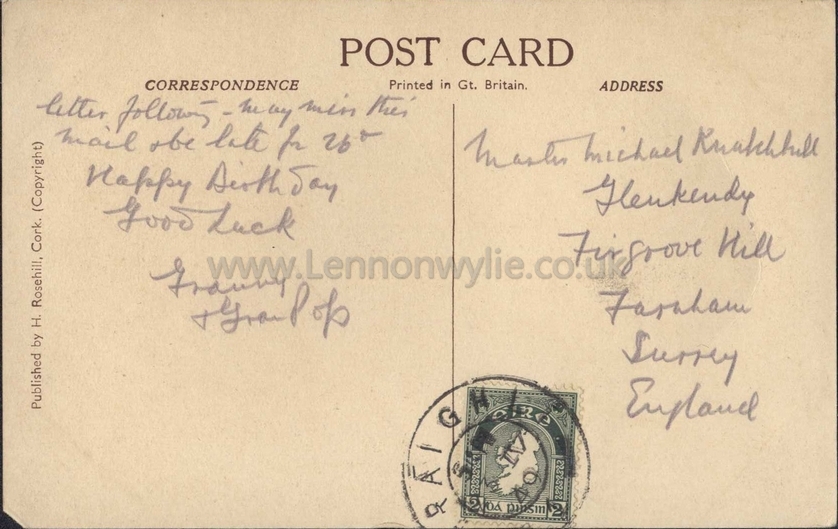 POST CARD
CORRESPONDENCE
Printed in Gt. Britain.
ADDRESS
letter following - may miss this
mail & be late for 26th
Happy Birthday
Good Luck
Granny
& GranPops
Master Michael Knatchbull
Glenkendy
Firgrove Hill
Farnham
Surrey
England
Published by H. Rosehill, Cork. (Copyright)
www.Lennonwylie.co.uk
RÁIGH
éIRe
2
2